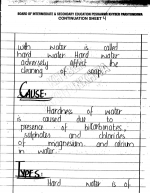 BOARD OF INTERMEDIATE & SECONDARY EDUCATION PESHAWAR KHYBER PAKHTUNKHWA
CONTINUATION SHEET
with water is called
hard water. Hard water
adversely affect the
cleaning of soap.
CAUSE:
Hardness of water
is caused due to
presence of bicarbonates,
sulphates and chlorides
of magnesium and calcium
in water.
TYPES:
Hard water is of